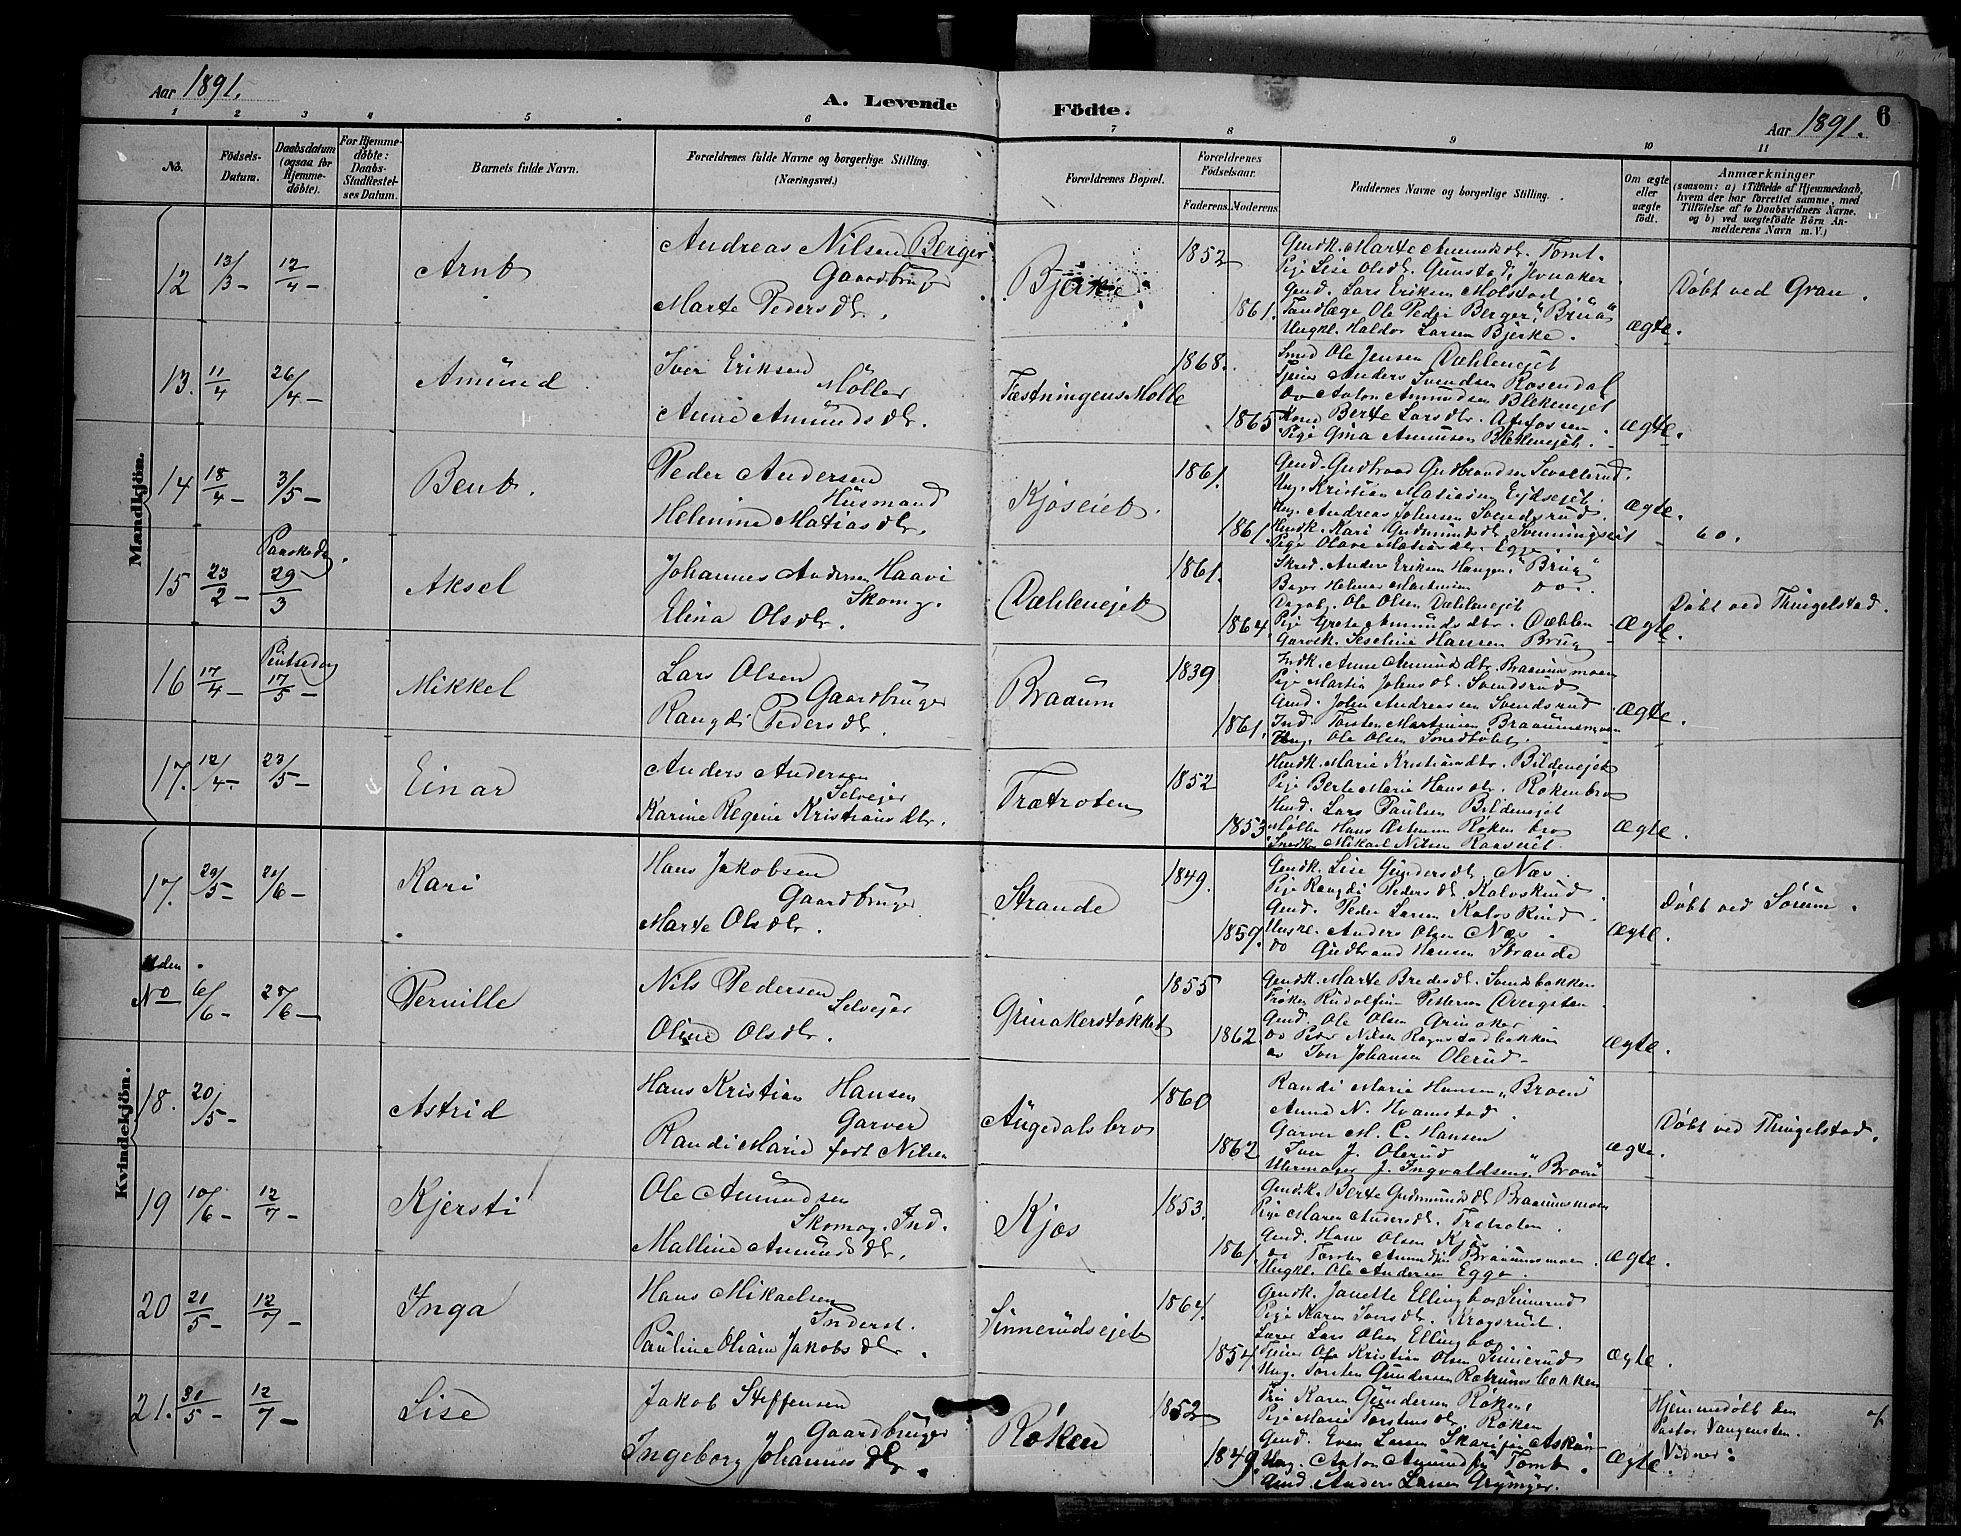 Aar 1891.
A. Levende Födte.
Aar 1891.
6
1 2 3 4 5 6 7 8 9 10 11
No.
Födsels-Datum.
Daabsdatum (ogsaa før Hjemme-döbte).
For Hjemme-döbte: Daabs-Stadfæstel-ses Datum.
Barnets fulde Navn.
Forældrenes fulde Navne og borgerlige Stilling. (Næringsvei.)
Forældrenes Bopæl.
Forældrenes Födselsaar.
Faderens. Moderens.
Faddernes Navne og borgerlige Stilling.
Om ægte eller uægte födt.
Anmærkninger
(saasom: a) i Tilfælde af Hjemmedaab, hvem der har forrettet samme, med Tilföielse af to Daabsvidners Navne. og b) ved uægtefödte Börn An-melderens Navn m. V.)
Mandkjön.
12 13/3 - 12/4 - Arnt
Andreas Nilsen Berger
Gaardbruger
Marte Pedersdtr.
Bjerke
1852
1861.
Gmdk. Marte Amundsdtr. Tomt.
Pige Lise Olsdtr. Grinstad, Jevnaker
Gmd. Lars Eriksen Molstad
Tandlæge Ole Peder Berger, "Brua"
Ungkl. Haldor Larsen Bjerke.
ægte.
Döbt ved Gran.
13. 11/4 26/4 - Amund
Iver Eriksen
Möller
Anne Amundsdtr.
Fæstningens Mölle
1868.
1865
Smed Ole Jensen Dæhlenejet
Tjener Anders Svendsen Rosendal
do Anton Amundsen Blekenejet
Kone Berte Larsdtr.
Pige Gina Blekenejet.
ægte.
14 18/4 - 3/5 - Bent.
Peder Andersen
Husmand
Helmine Matiasdtr.
Kjøseiet.
1861.
1861.
Gmd. Gudbrand Gudbrandsen
Ung. Kristian Matiasen
Ung. Andreas Johnsen Svendsrud.
Kari Gudmundsdtr.
Pige Olave Matiasdtr. Egge.
ægte.
do.
15 23/2 - Paaskedag. 29/3 Aksel
Johannes Andersen Haavi
Skomg.
Elina Olsdtr.
Dæhlenejet
1861.
1864.
Skred. Anders Eriksen Haugen, "Brug"
Bager Helmer Martinsen do.
Dagarb. Ole Olsen Dæhlenejet
Pige Grete Amundsdtr. Dæhlen
Garvk. Hansen Brug
Ægte.
Döbt ved Thingelstad.
16 17/4 - Pintsedag 17/5 - Mikkel
Lars Olsen
Gaardbruger
Rangdi Pedersdtr.
Braaum
1839
1861.
Indk. Anne Amundsdtr. Braaumsmoen
Pige Martin Johnsdtr. Svendsrud
Gmd. John Andreassen Svendsrud
Ind. Torsten Martinsen Braaumsmoen
Ung. Ole Olsen
Ægte.
17. 12/4 - 23/5 - Einar
Anders Andersen
Selvejer
Karine Regine Kristiansdtr.
Trætroten
1852
1853
Hmdk. Marie Kristiansdtr. Bildenejet
Pige Berte Marie Hansdtr. Røkenbro
Hmd. Lars Paulsen Bildenejet
Møller Hans Røkenbro
Snedk. Mikael Nilsen
ægte.
Kvindekjön.
17. 29/5 - 21/6 - Kari
Hans Jakobsen
Gaardbruger
Marte Olsdtr.
Strande
1849.
1859.
Gmdk. Lise Gundersdtr. Næs.
Pige Rangdi Pedersdtr. Kalvskind
Gmd. Peder Larsen Kalvskind.
Ungkl. Anders Olsen Næs.
do Gudbrand Hansen Strande
ægte.
Döbt ved Sörum.
Uden No 6/6 - 28/6 - Pernille
Nils Pedersen
Selvejer
Oline Olsdtr.
Grinakerstøkket
1855
1862
Gmdk. Marte Bredesdtr. Svendsbakken
Frøken Rudolfine Pettersen Dvergsten
Gmd. Ole Olsen Grinaker
do Peder Nilsen Rognstadbakken
do Iver Johansen Olerud
ægte.
18. 20/5 - Astrid
Hans Kristian Hansen
Garver
Randi Marie født Nilsen
Augedalsbro
1860
1862
Randi Marie Hansen, "Broen"
Anne N. Hvamstad.
Garver M. C. Hansen
Iver J. Olerud
Uhrmager J. Ingvaldsen, "Broen"
ægte.
Döbt ved Thingelstad.
19 10/6 - 12/7 - Kjersti
Ole Amundsen
Skomag. Ind.
Malline Amundsdtr.
Kjøs
1853.
1861.
Gmdk. Berte Gudmundsdtr. Braaumsmoen
Pige Maren Andersdtr. Trætroten.
Gmd. Hans Olsen Kjøs
do Torsten Amundsen Braaumsmoen
Ungkl. Ole Andersen Egge.
ægte.
20 21/5 - 12/7 - Inga
Hans Mikaelsen
Inderst.
Pauline Oliane Jakobsdtr.
Sinnerudsejet
1864.
1854.
Gmdk. Janette Ellingbø Sinnerud
Pige Karen Iversdtr. Krogsrud.
Lærer Lars Olsen Ellingbø
Tjener Ole Kristian Olsen Sinnerud
Ung. Torsten Gundersen
ægte.
21. 31/5 - 12/7 - Lise
Jakob Steffensen
Gaardbruger
Ingeborg Johannesdtr.
Røken
1852
1849.
Fru Karen Gundersen Røken
Pige Marie Torstensdtr. Røken
Gmd. Even Larsen
Ung. Anton Amundsen Tomt.
Gmd. Anders Larsen Grymyr.
Ægte.
Hjemmedøbt den af
Pastor Vangensten.
Vidner: